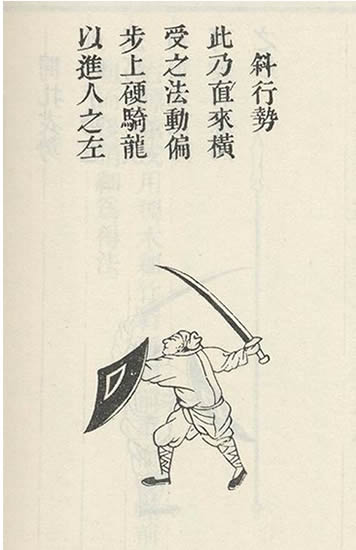 斜行勢
此乃直來橫
受之法動偏
步上硬騎龍
以進人之左